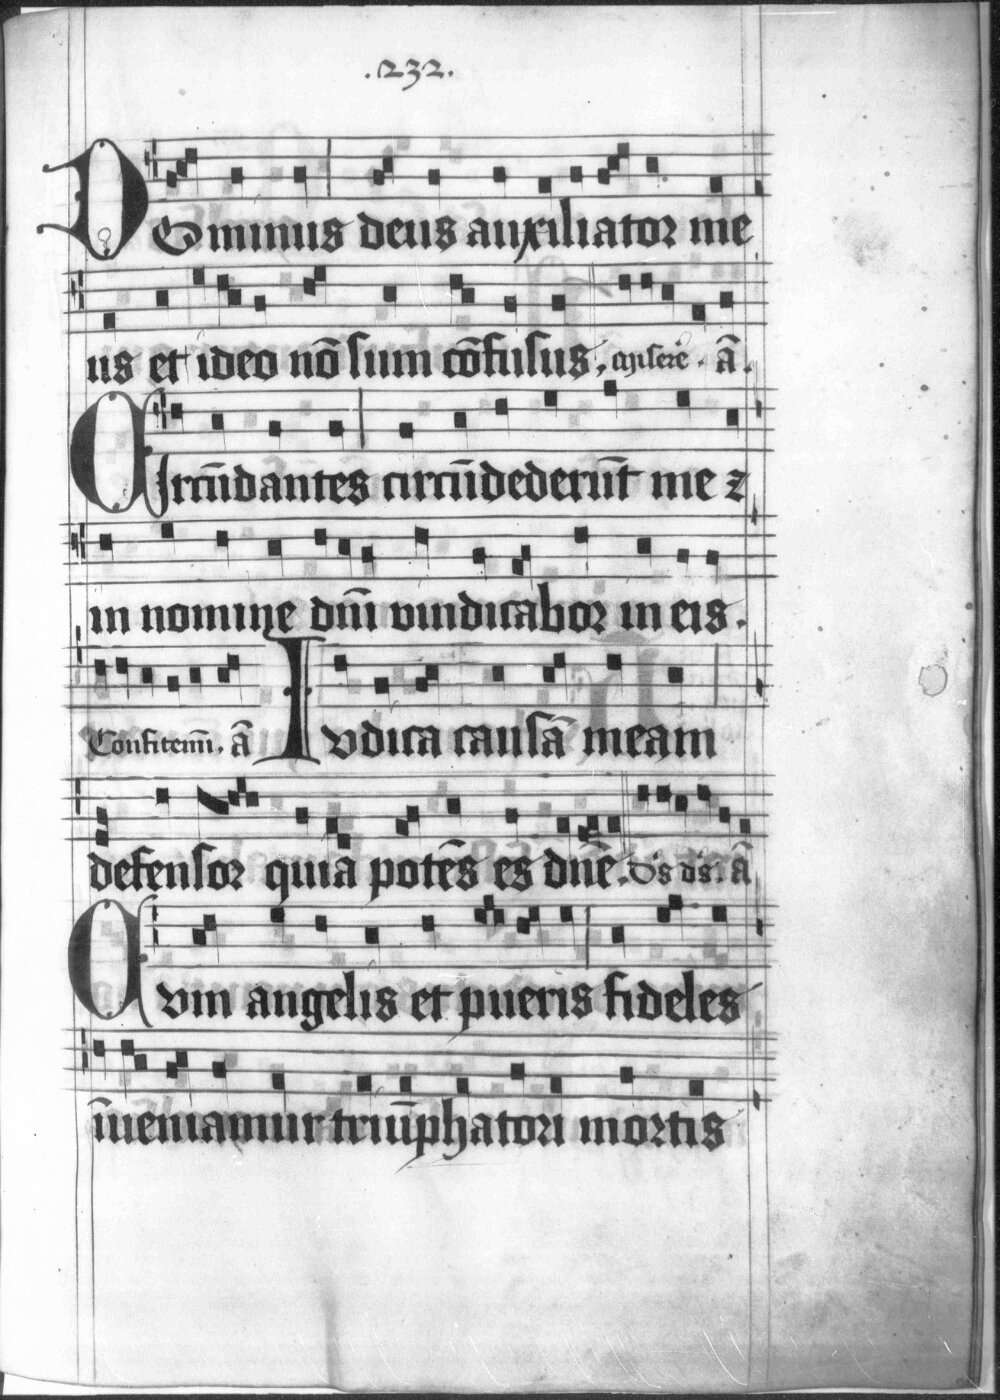 .232.
Dominus deus auxiliator me
us et ideo nō sum cōfusus, Miserē. ā.
Circūdantes circūdederūt me ⁊
in nomine dn̄i vindicabor in eis.
Confitemī. ā Iudica causā meam
defensor quia potēs es dn̄e. Ds ds. ā
Cvm angelis et pueris fideles
īueniamur triūphatori mortis